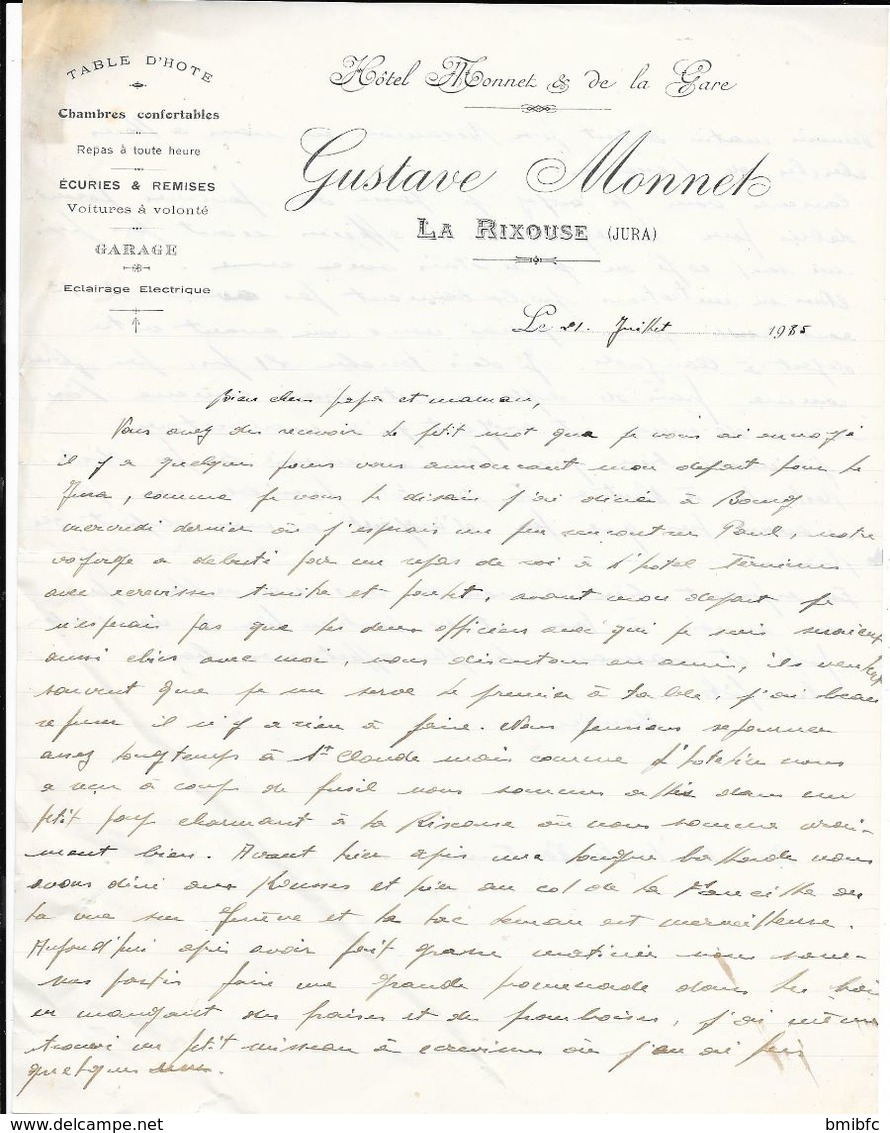 TABLE D'HOTE
Chambres confortables
Repas à toute heure
ÉCURIES & REMISES
Voitures à volonté
GARAGE
Eclairage Electrique
Hôtel Monnet & de la Gare
Gustave Monnet
LA RIXOUSE (JURA)
Le 21. Juillet 1935
Bien chers papa et maman,
Vous avez du recevoir le petit mot que je vous ai envoyé
il y a quelques jours vous annoncant mon depart pour le
Jura, comme je vous le disais j'ai diné à Bourg
mercredi dernier où j'esperais un peu rencontrer Paul, notre
voyage a debuté par un repas de roi à l'hotel Terminus
avec ecrevisses truite et poulet, avant mon depart je
n'esperais pas que les deux officiers avec qui je suis seraient
aussi chics avec moi, nous discutons en amis, ils veulent
souvent que je me serve le premier à table, j'ai beau
refuser il n'y a rien à faire. Nous pensions sejourner
assez longtemps à St Claude mais comme l'hotelier nous
a reçu à coup de fusil nous sommes allés dans un
petit pays charmant à la Rixouse où nous somme vrai-
ment bien. Avant hier après une longue ballade nous
avons diné aux Rousses et hier au col de la Faucille où
la vue sur Genève et le lac Leman est merveilleuse.
Aujourd'hui après avoir fait grasse matinée nous som-
mes partis faire une grande promenade dans les bois
en mangeant des fraises et des framboises, j'ai même
trouvé un petit ruisseau à ecrevisses où j'en ai pris
quelques unes.
bmibfc